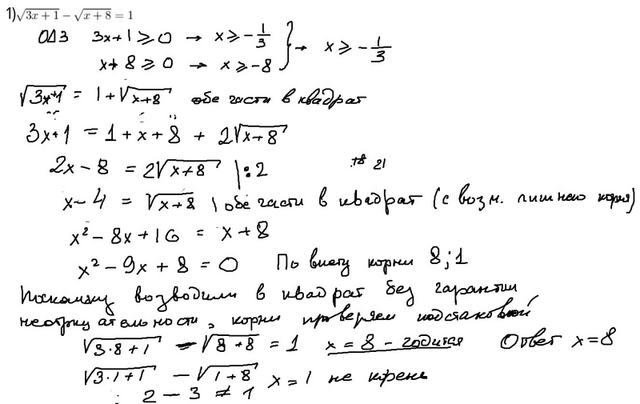 1) √3x+1 − √x+8 = 1
ОДЗ 3x+1 ≥ 0 → x ≥ −1/3 } → x ≥ −1/3
x+8 ≥ 0 → x ≥ −8
√3x+1 = 1+√x+8 обе части в квадрат
3x+1 = 1+x+8 + 2√x+8
2x−8 = 2√x+8 |:2
x−4 = √x+8 , обе части в квадрат (с возн. лишнего корня)
x² − 8x + 16 = x+8
x² − 9x + 8 = 0 По виету корни 8;1
Поскольку возводили в квадрат без гарантии
неотрицательности, корни проверяем подстановкой
√3·8+1 − √8+8 = 1 x = 8 − годится Ответ x=8
√3·1+1 − √1+8 x = 1 не корень
2 − 3 ≠ 1